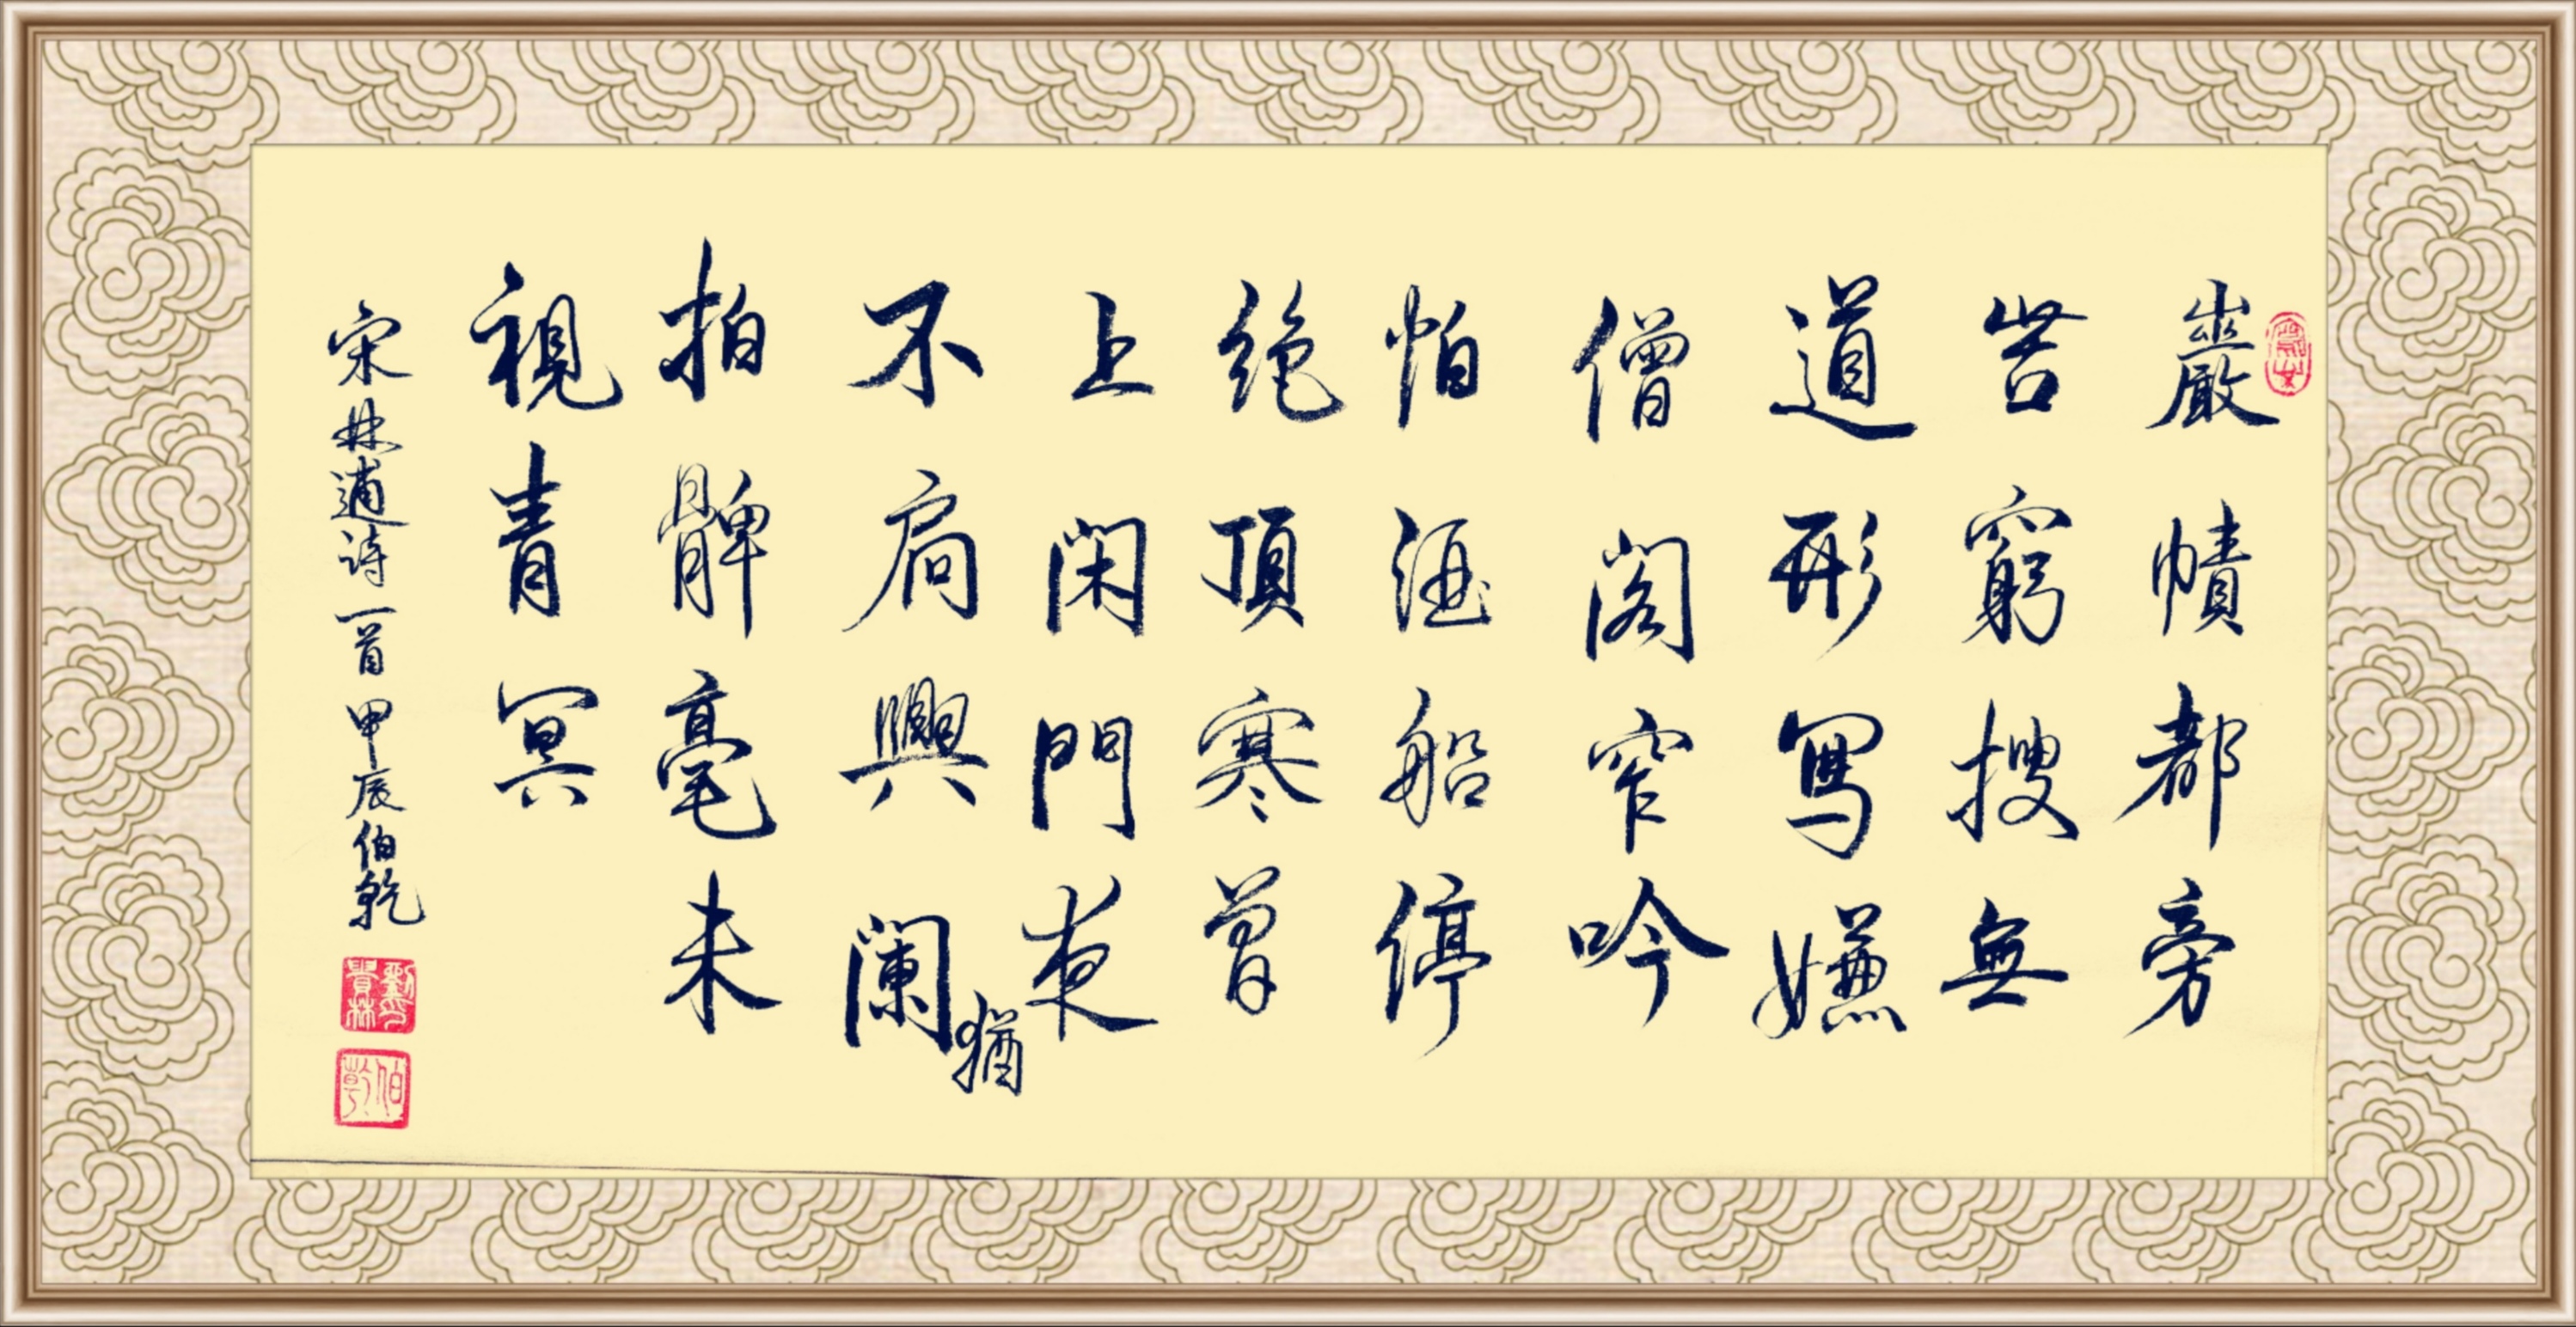 巖幘都旁
苦窮搜無
道形寫嫌
僧閣窄吟
怕酒船停
絶頂寒曾
上閑門夜
不扃興闌猶
拍髀毫末
視青冥
宋林逋詩一首 甲辰伯乾
伯乾